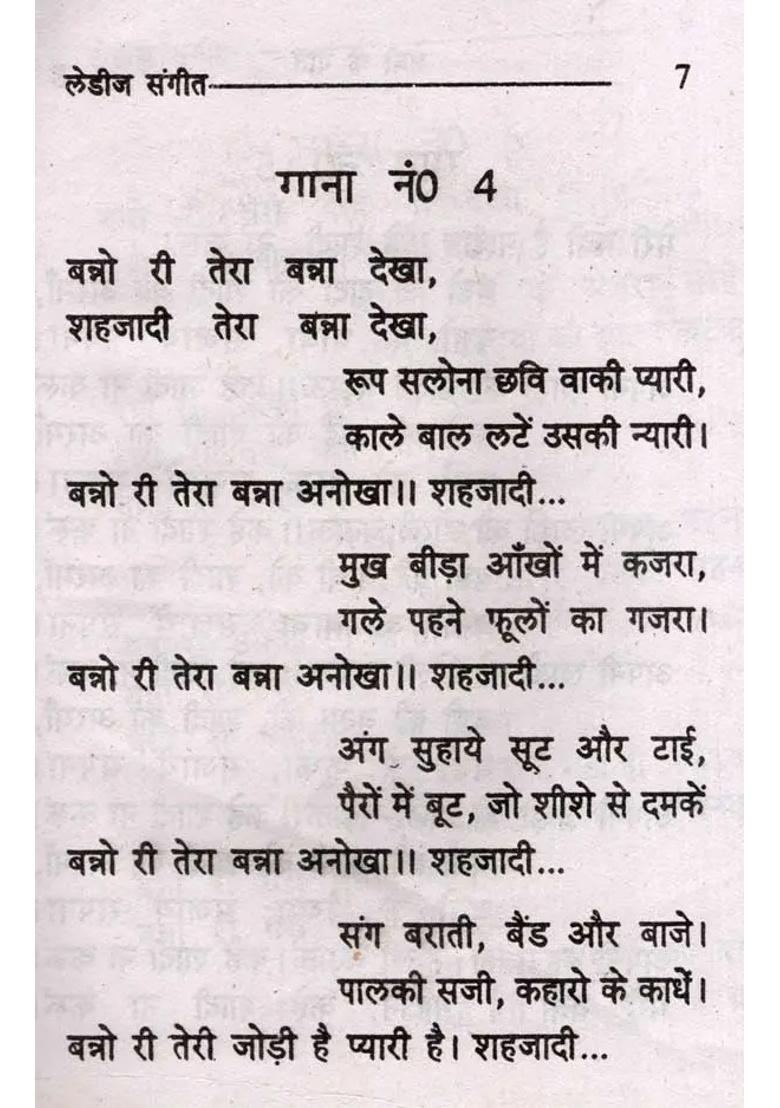 लेडीज संगीत 7
गाना नं0 4
बन्नो री तेरा बन्ना देखा,
शहजादी तेरा बन्ना देखा,
रूप सलोना छवि वाकी प्यारी,
काले बाल लटें उसकी न्यारी।
बन्नो री तेरा बन्ना अनोखा।। शहजादी...
मुख बीड़ा आँखों में कजरा,
गले पहने फूलों का गजरा।
बन्नो री तेरा बन्ना अनोखा।। शहजादी...
अंग सुहाये सूट और टाई,
पैरों में बूट, जो शीशे से दमकें
बन्नो री तेरा बन्ना अनोखा।। शहजादी...
संग बराती, बैंड और बाजे।
पालकी सजी, कहारो के काधें।
बन्नो री तेरी जोड़ी है प्यारी है। शहजादी...